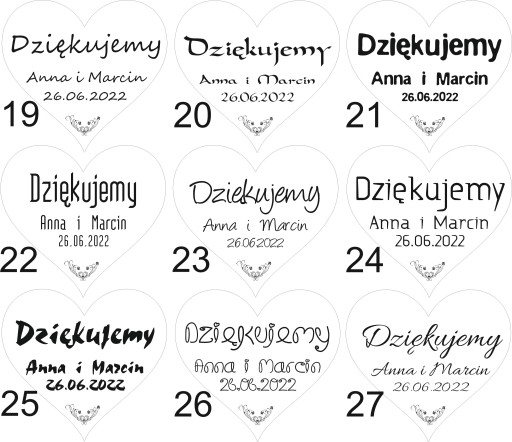 Dziękujemy
Anna i Marcin
26.06.2022
19
Dziękujemy
Anna i Marcin
26.06.2022
20
Dziękujemy
Anna i Marcin
26.06.2022
21
Dziękujemy
Anna i Marcin
26.06.2022
22
Dziekujemy
Anna i Marcin
26.06.2022
23
Dziękujemy
Anna i Marcin
26.06.2022
24
Dziękujemy
Anna i Marcin
26.06.2022
25
Dziękujemy
Anna i Marcin
26.06.2022
26
Dziękujemy
Anna i Marcin
26.06.2022
27